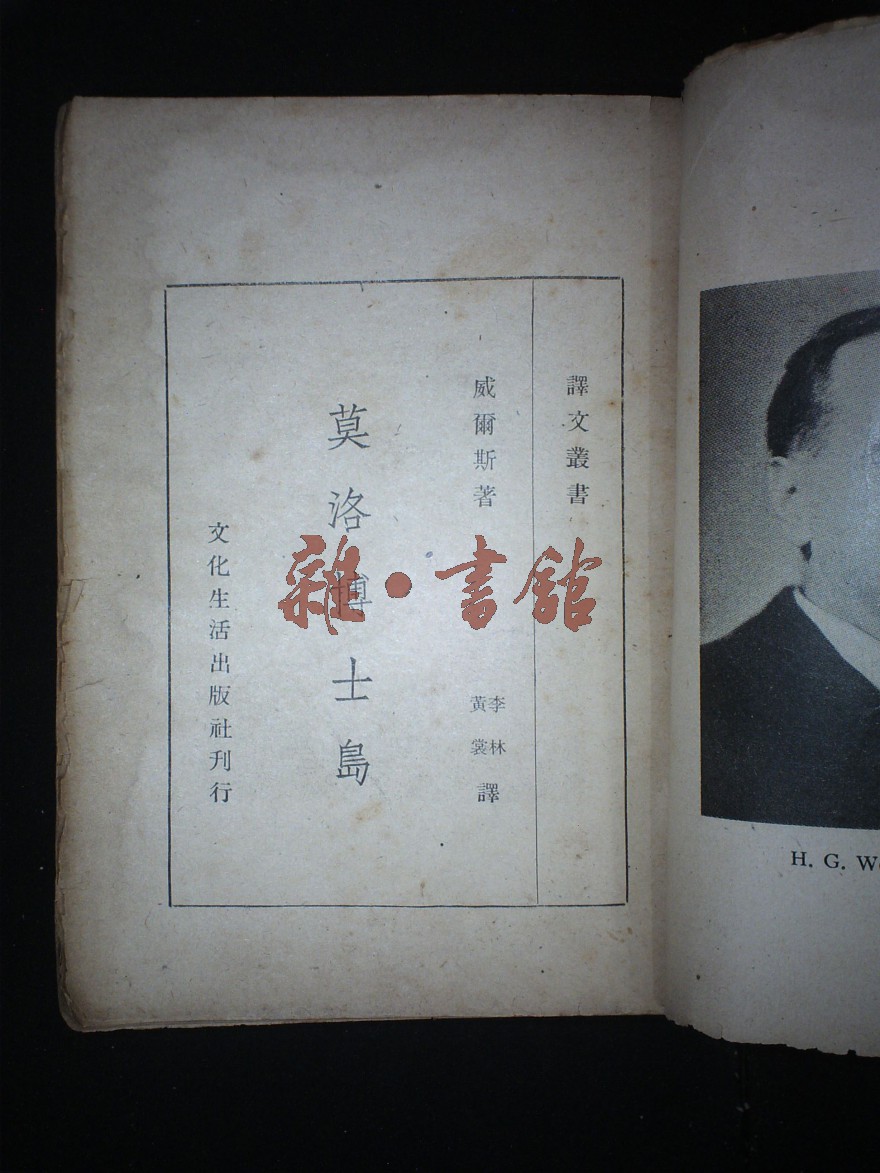 譯文叢書
威爾斯著
李林
黃裳
譯
莫洛博士島
文化生活出版社刊行
雜·書館
H. G. W